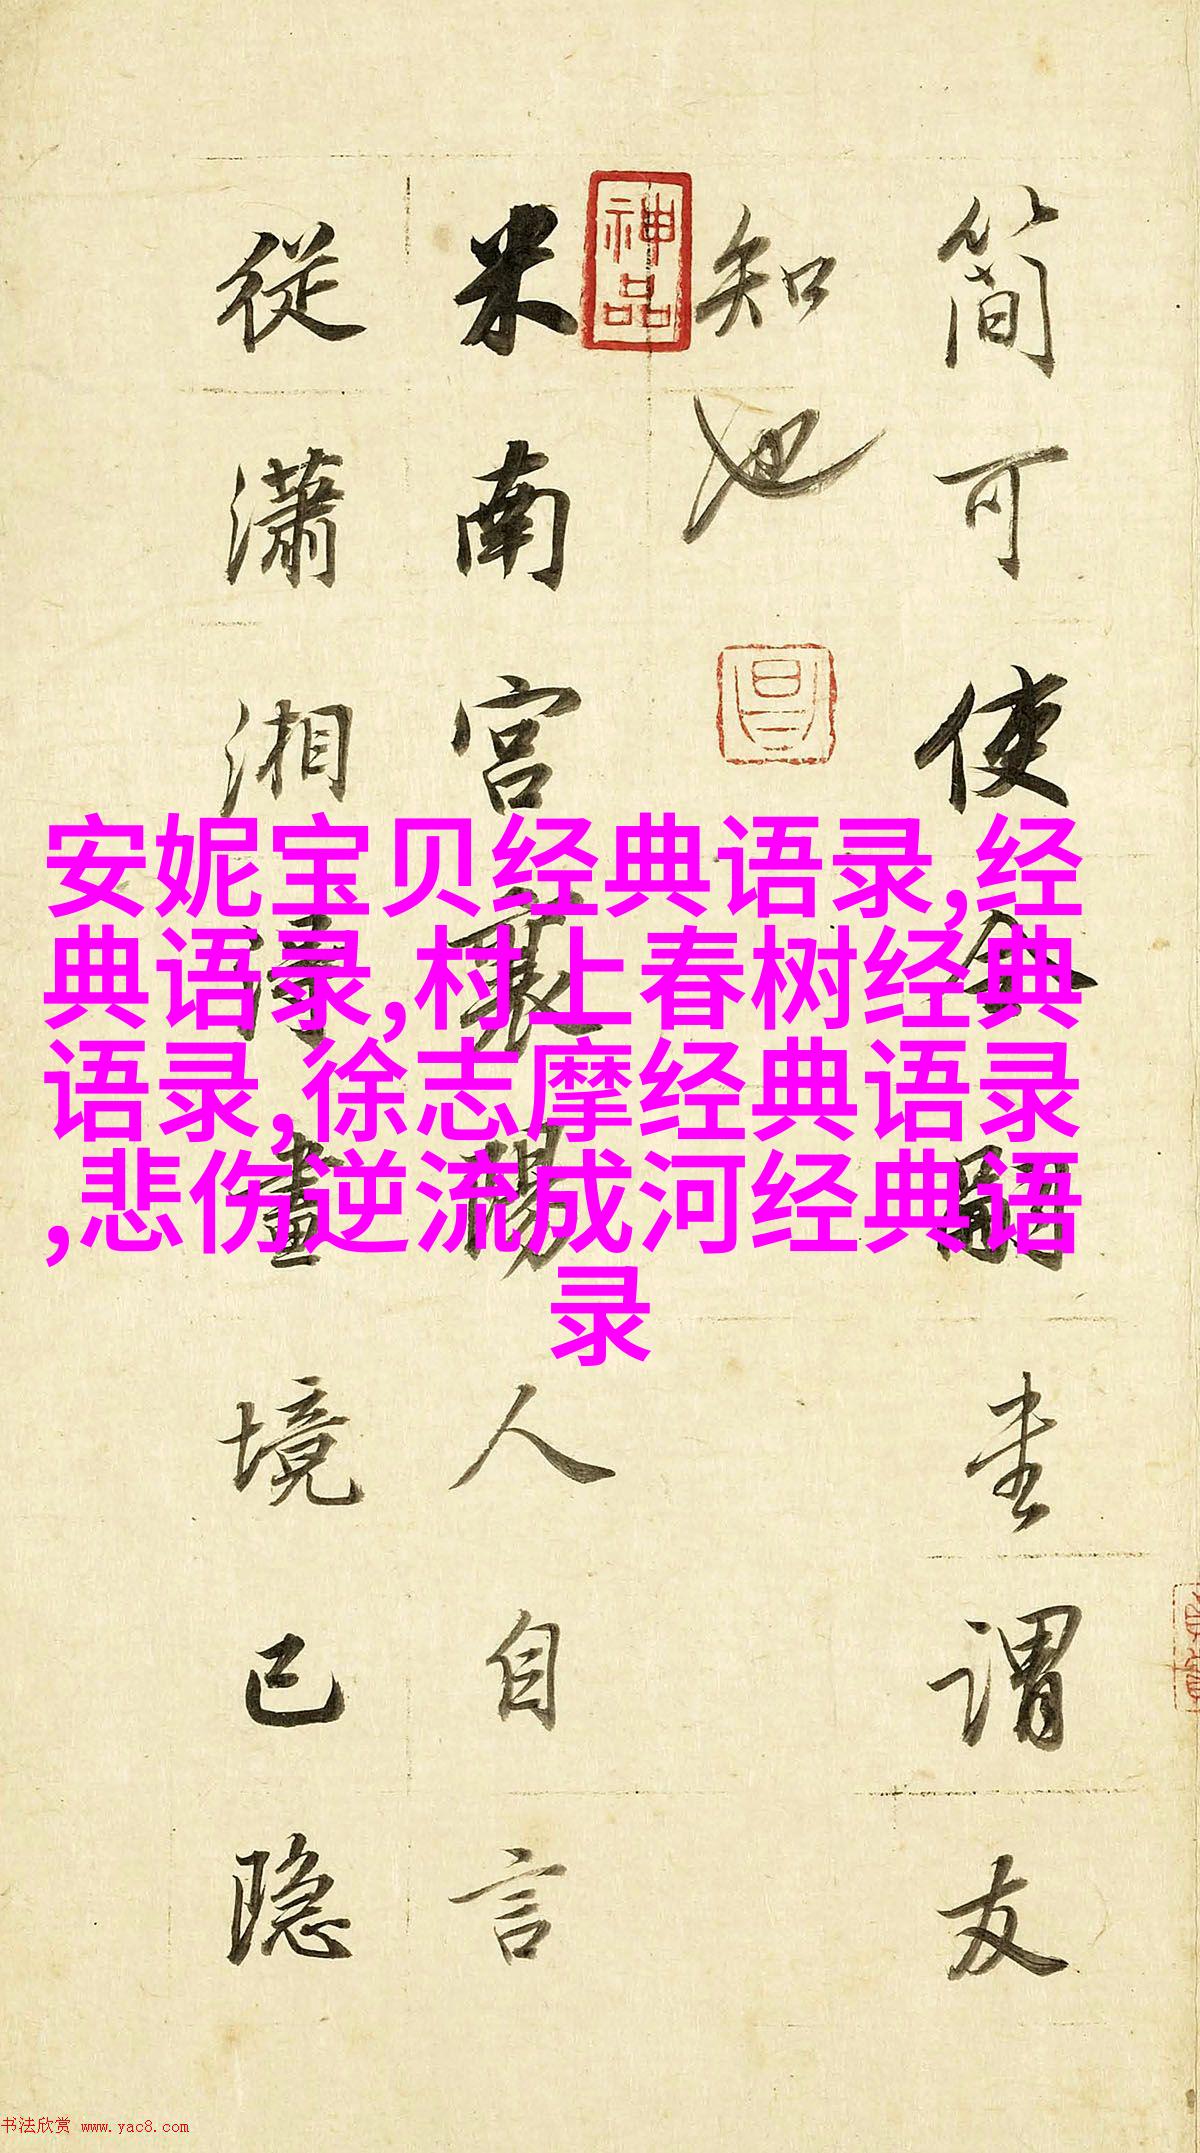 简可使令嗣圭谓友
知也
米南宫襄阳人自言
從瀟湘得畫境已隐
神品
安妮宝贝经典语录,经
典语录,村上春树经典
语录,徐志摩经典语录
,悲伤逆流成河经典语
录
书法欣赏 www.yac8.com